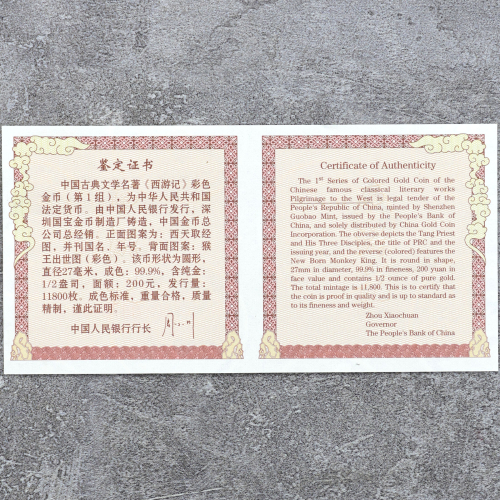 鉴定证书
中国古典文学名著《西游记》彩色
金币（第1组），为中华人民共和国
法定货币。由中国人民银行发行，深
圳国宝金币制造厂铸造，中国金币总
公司总经销。正面图案为：西天取经
图，并刊国名、年号。背面图案：猴
王出世图（彩色）。该币形状为圆形，
直径27毫米，成色：99.9%，含纯金：
1/2盎司，面额：200元，发行量：
11800枚。成色标准，重量合格，质量
精制，谨此证明。
中国人民银行行长
Certificate of Authenticity
The 1st Series of Colored Gold Coin of the
Chinese famous classical literary works
Pligrimage to the West is legal tender of the
People's Republic of China, minted by Shenzhen
Guobao Mint, issued by the People's Bank of
China, and solely distributed by China Gold Coin
Incorporation. The obverse depicts the Tang Priest
and His Three Disciples, the title of PRC and the
issuing year, and the reverse (colored) features the
New Born Monkey King. It is round in shape,
27mm in diameter, 99.9% in fineness, 200 yuan in
face value and contains 1/2 ounce of pure gold.
The total mintage is 11,800. This is to certify that
the coin is proof in quality and is up to standard as
to its fineness and weight.
Zhou Xiaochuan
Governor
The People's Bank of China